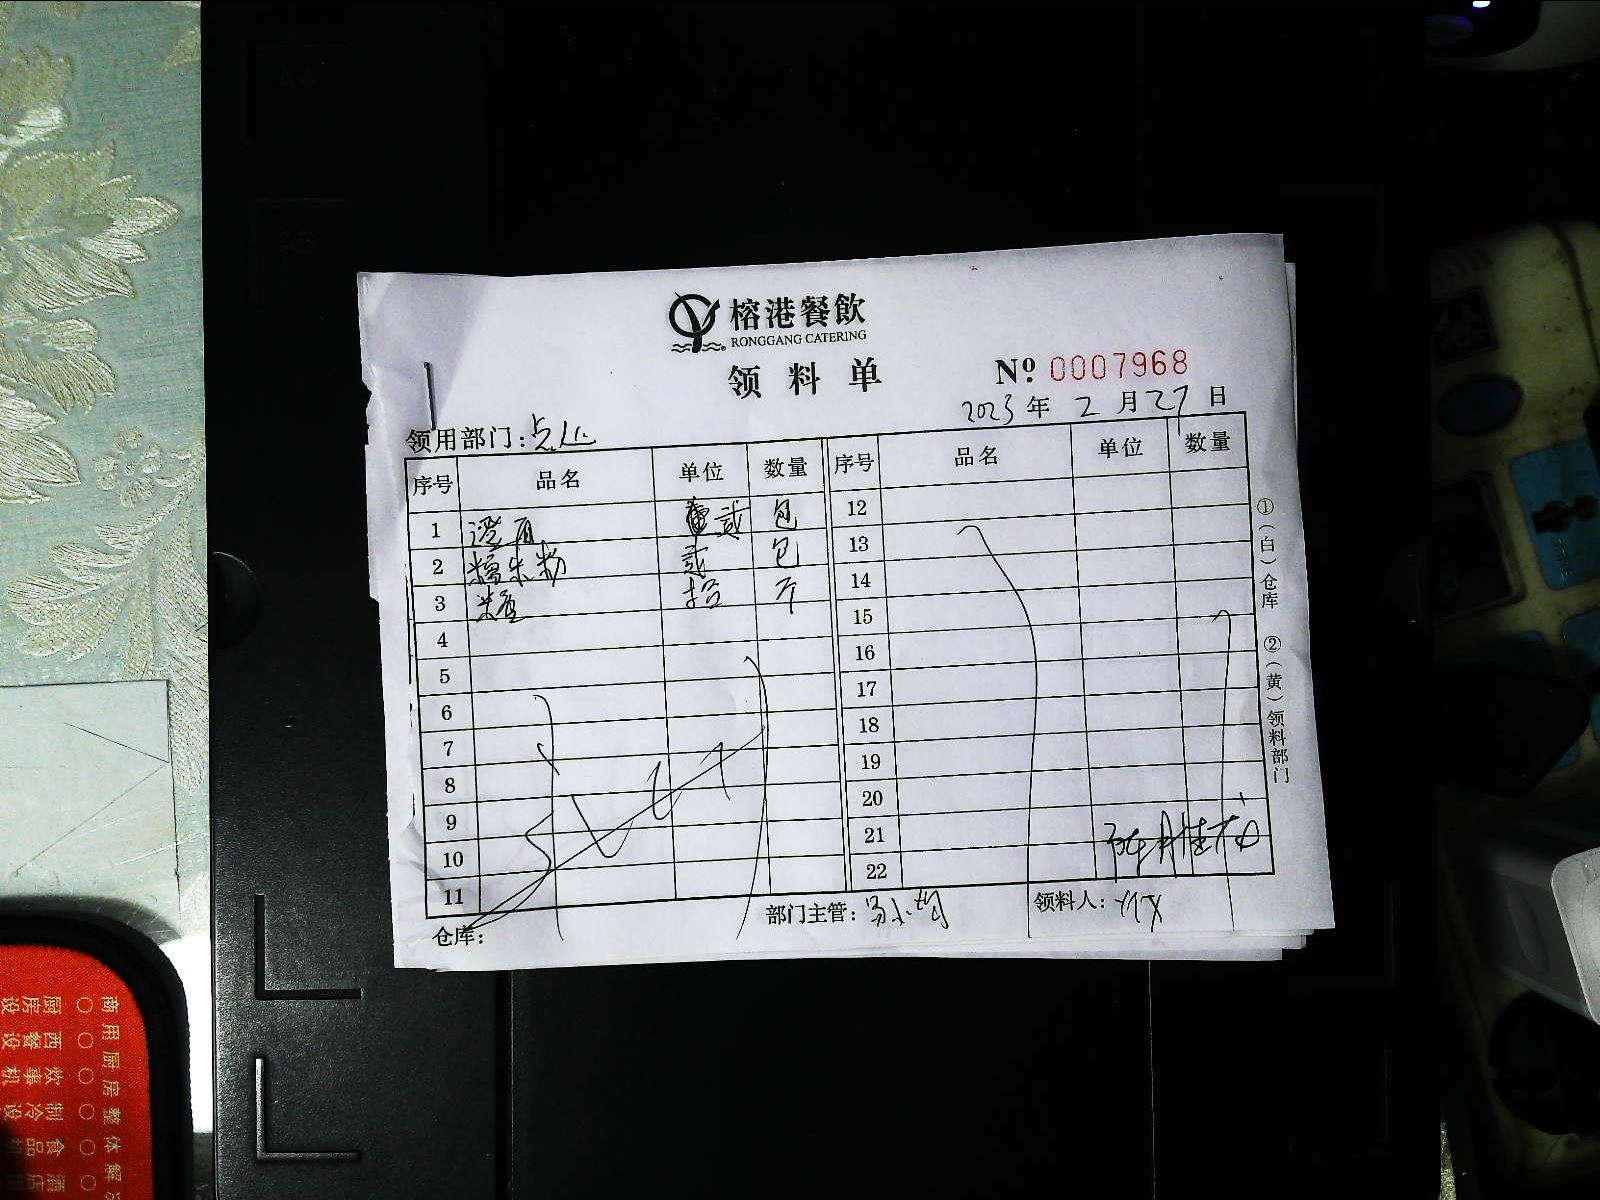 榕港餐飲
RONGGANG CATERING
领料单
№ 0007968
2023年2月27日
领用部门：点心
序号 品名 单位 数量 序号 品名 单位 数量
1 澄面 贰 包 12
2 糯米粉 贰 包 13
3 拾 斤 14
4 15
5 16
6 17
7 18
8 19
9 20
10 21
11 22
仓库： 部门主管： 领料人：
①（白）仓库 ②（黄）领料部门
商用厨房整体解
○ 厨房设
○ 西餐设
○ 炊事机
○ 制冷设
○ 食品机
○ 酒店